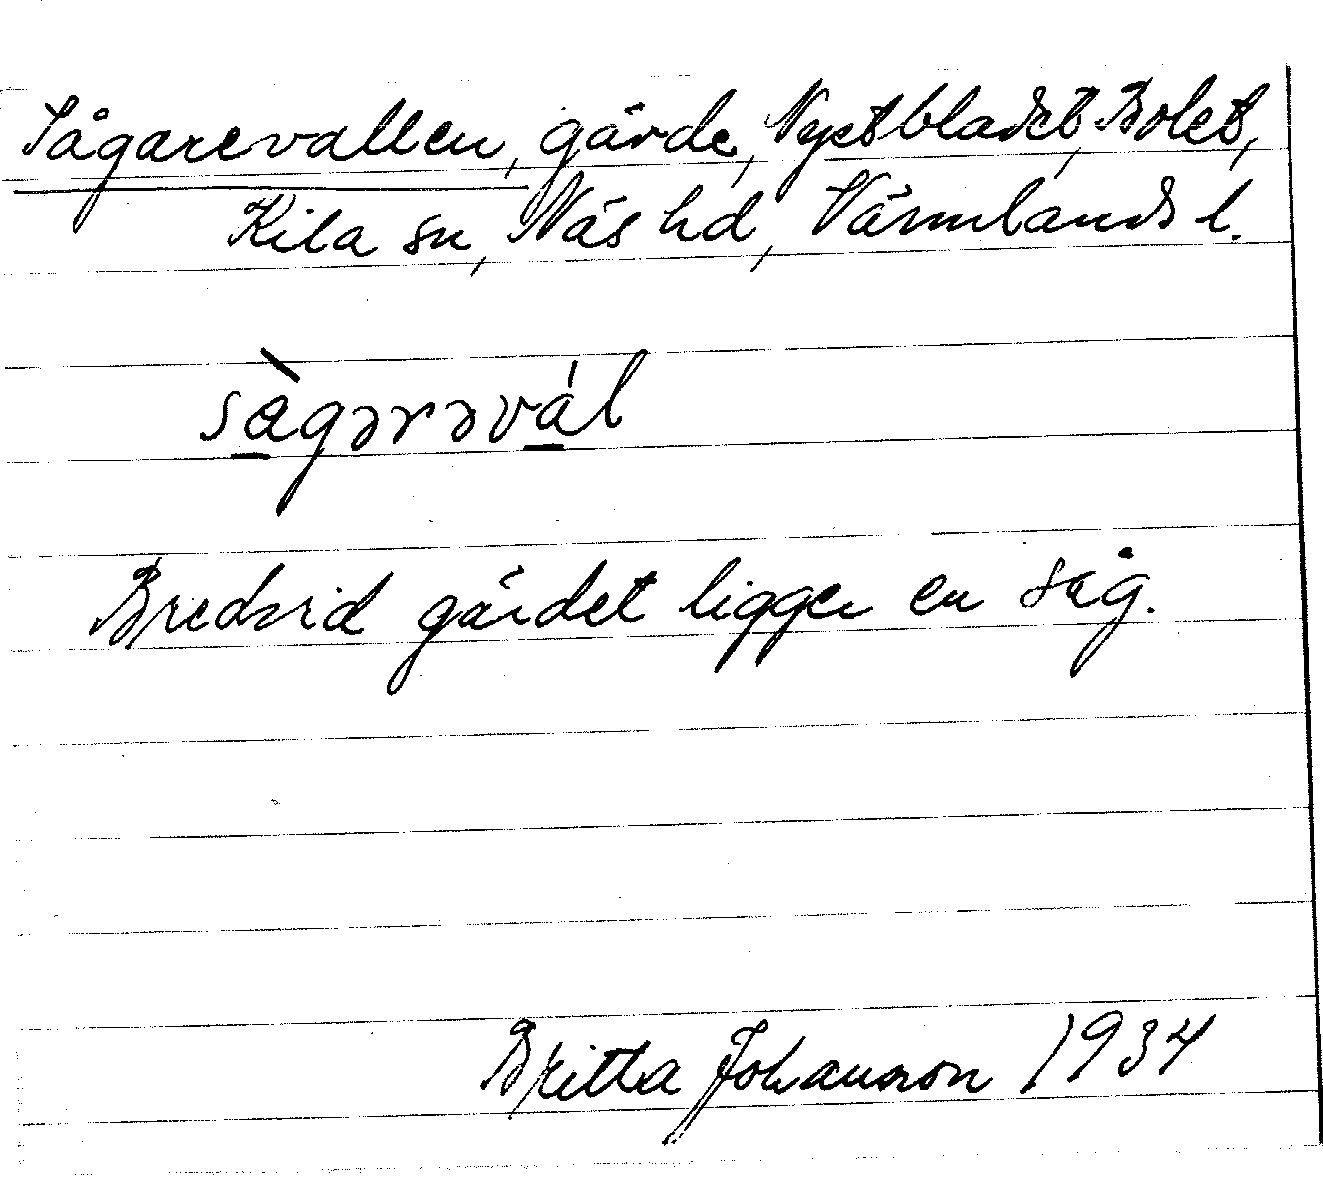 Sågarevallen, gärde, Nystbladet, Bolet,
Kila sn, Näs hd, Värmlands l.
sàgərəvál
Bredvid gärdet ligger en såg.
Britta Johansson 1934